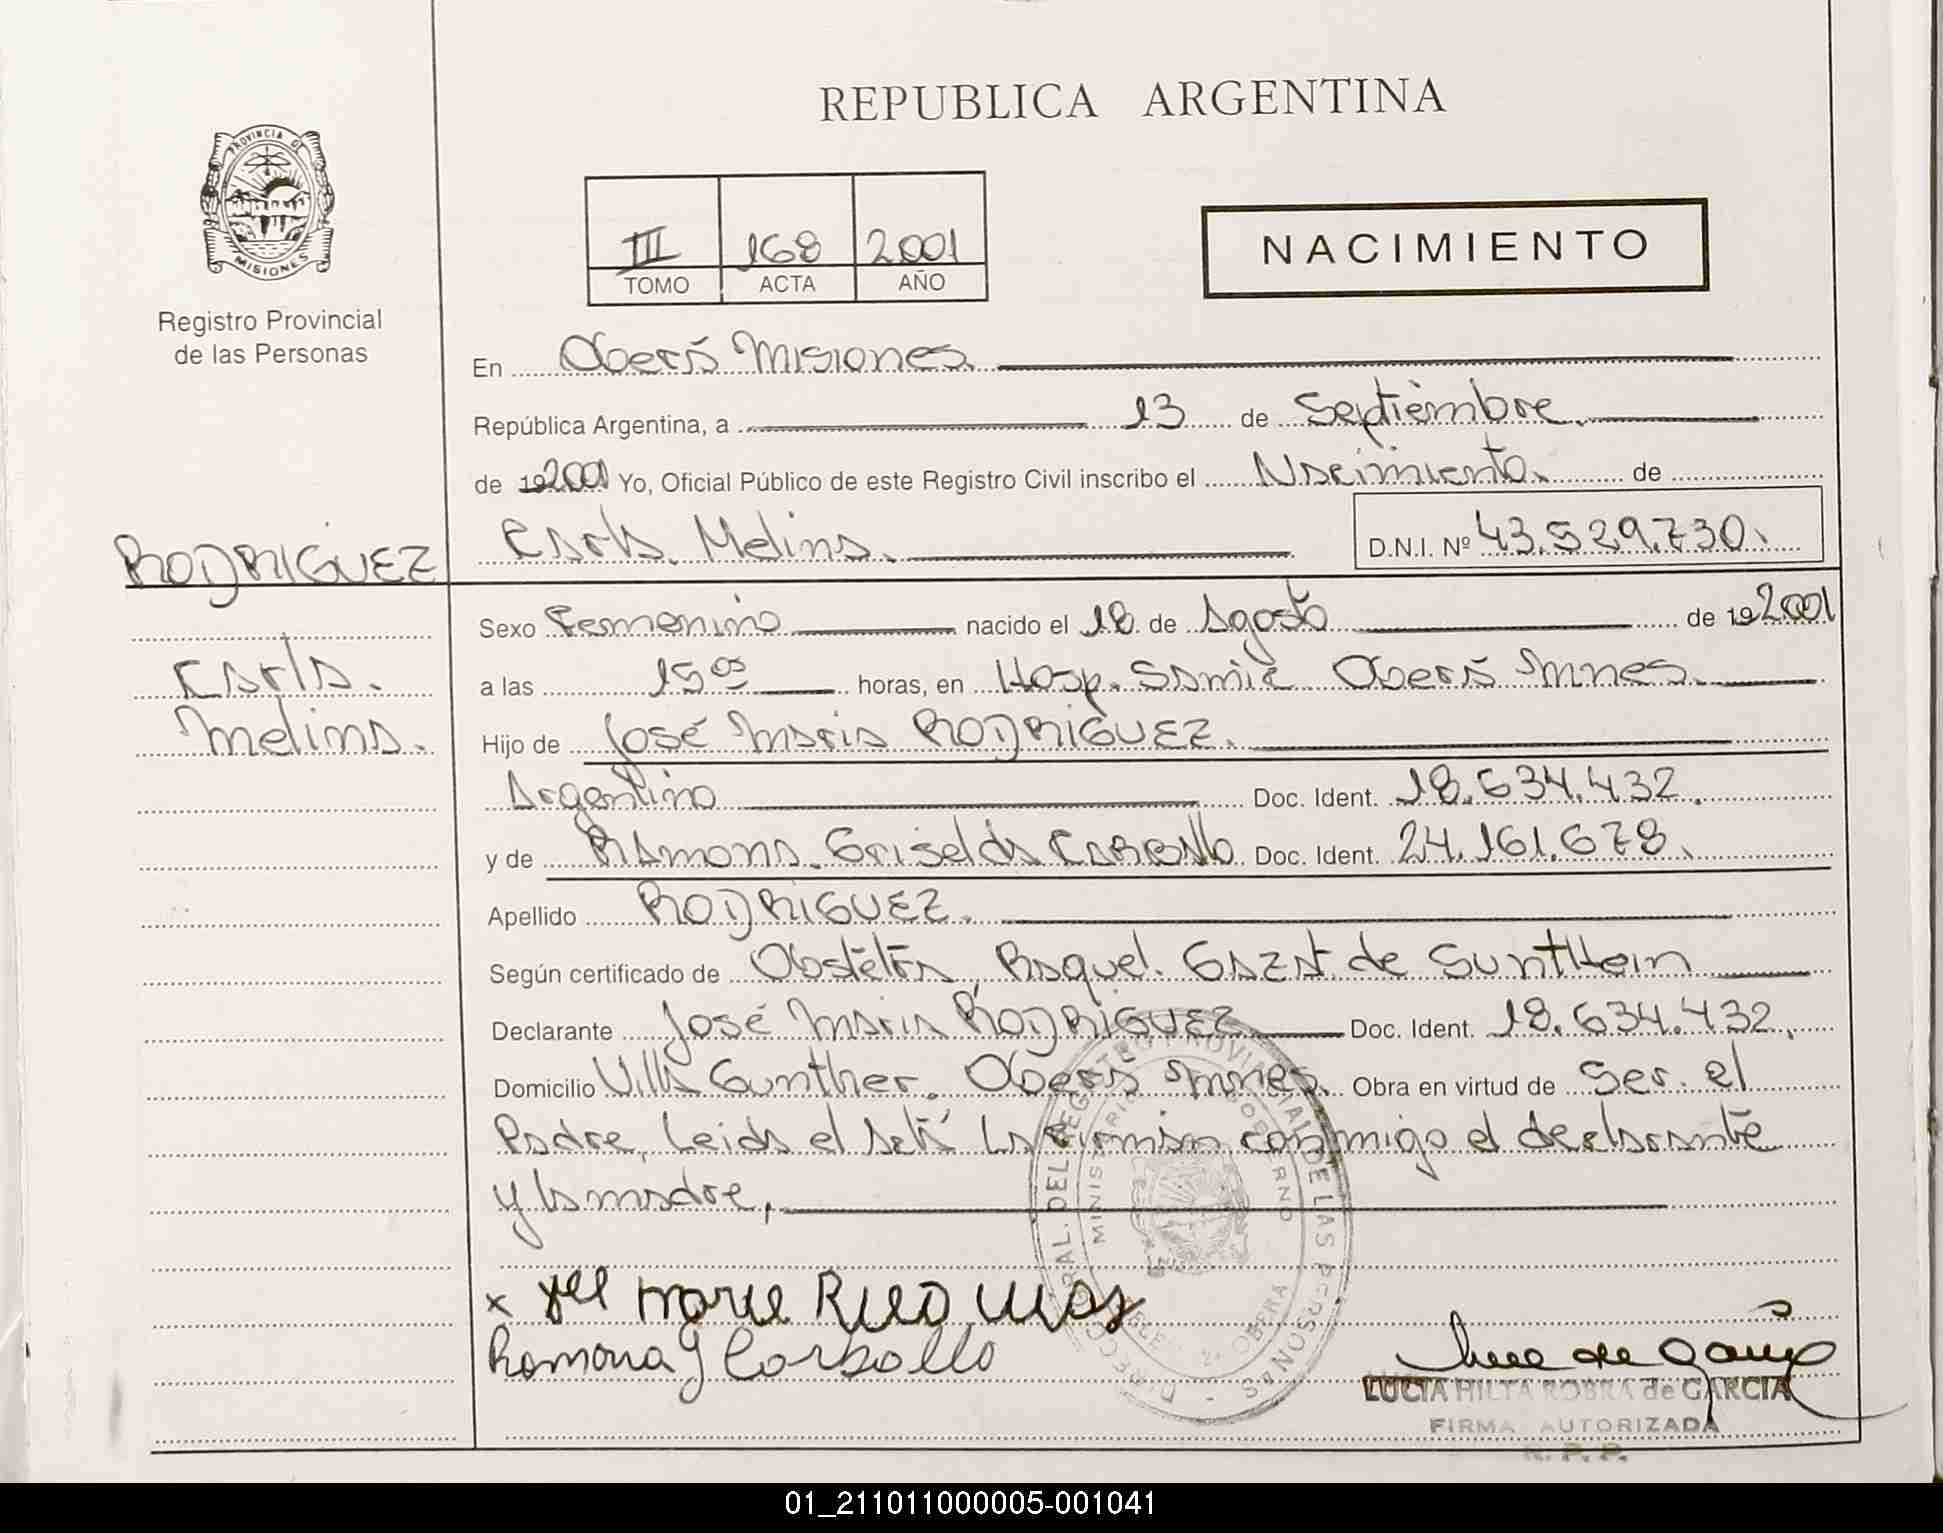 REPUBLICA ARGENTINA
PROVINCIA DE
MISIONES
Registro Provincial
de las Personas
III 168 2001
TOMO ACTA AÑO
NACIMIENTO
En Oberá Misiones
República Argentina, a 13 de Septiembre
de 192001 Yo, Oficial Público de este Registro Civil inscribo el Nacimiento. de
Carla Melina. D.N.I. Nº 43.529.730.
RODRIGUEZ
Carla.
Melina.
Sexo Femenino nacido el 18 de Agosto de 192001
a las 15 05 horas, en Hosp. Samic Oberá Mnes.
Hijo de José Maria RODRIGUEZ.
Argentino Doc. Ident. 18.634.432.
y de Ramona Griselda Carballo Doc. Ident. 24.161.678.
Apellido RODRIGUEZ.
Según certificado de Obstétra, Raquel. Gazat de Sunthein
Declarante José Maria RODRIGUEZ Doc. Ident. 18.634.432.
Domicilio Villa Gunther. Oberá Mnes. Obra en virtud de Ser. el
Padre, Leida el acta La firman conmigo el declarante
y la madre,
x
Ramona G Carballo
DIRECC GRAL. DEL REGISTRO PROVINCIAL DE LAS PERSONAS
MINISTERIO GOBIERNO
OBERA
LUCIA HILTA ROBRA de GARCIA
FIRMA AUTORIZADA
R. P. P.
01_211011000005-001041